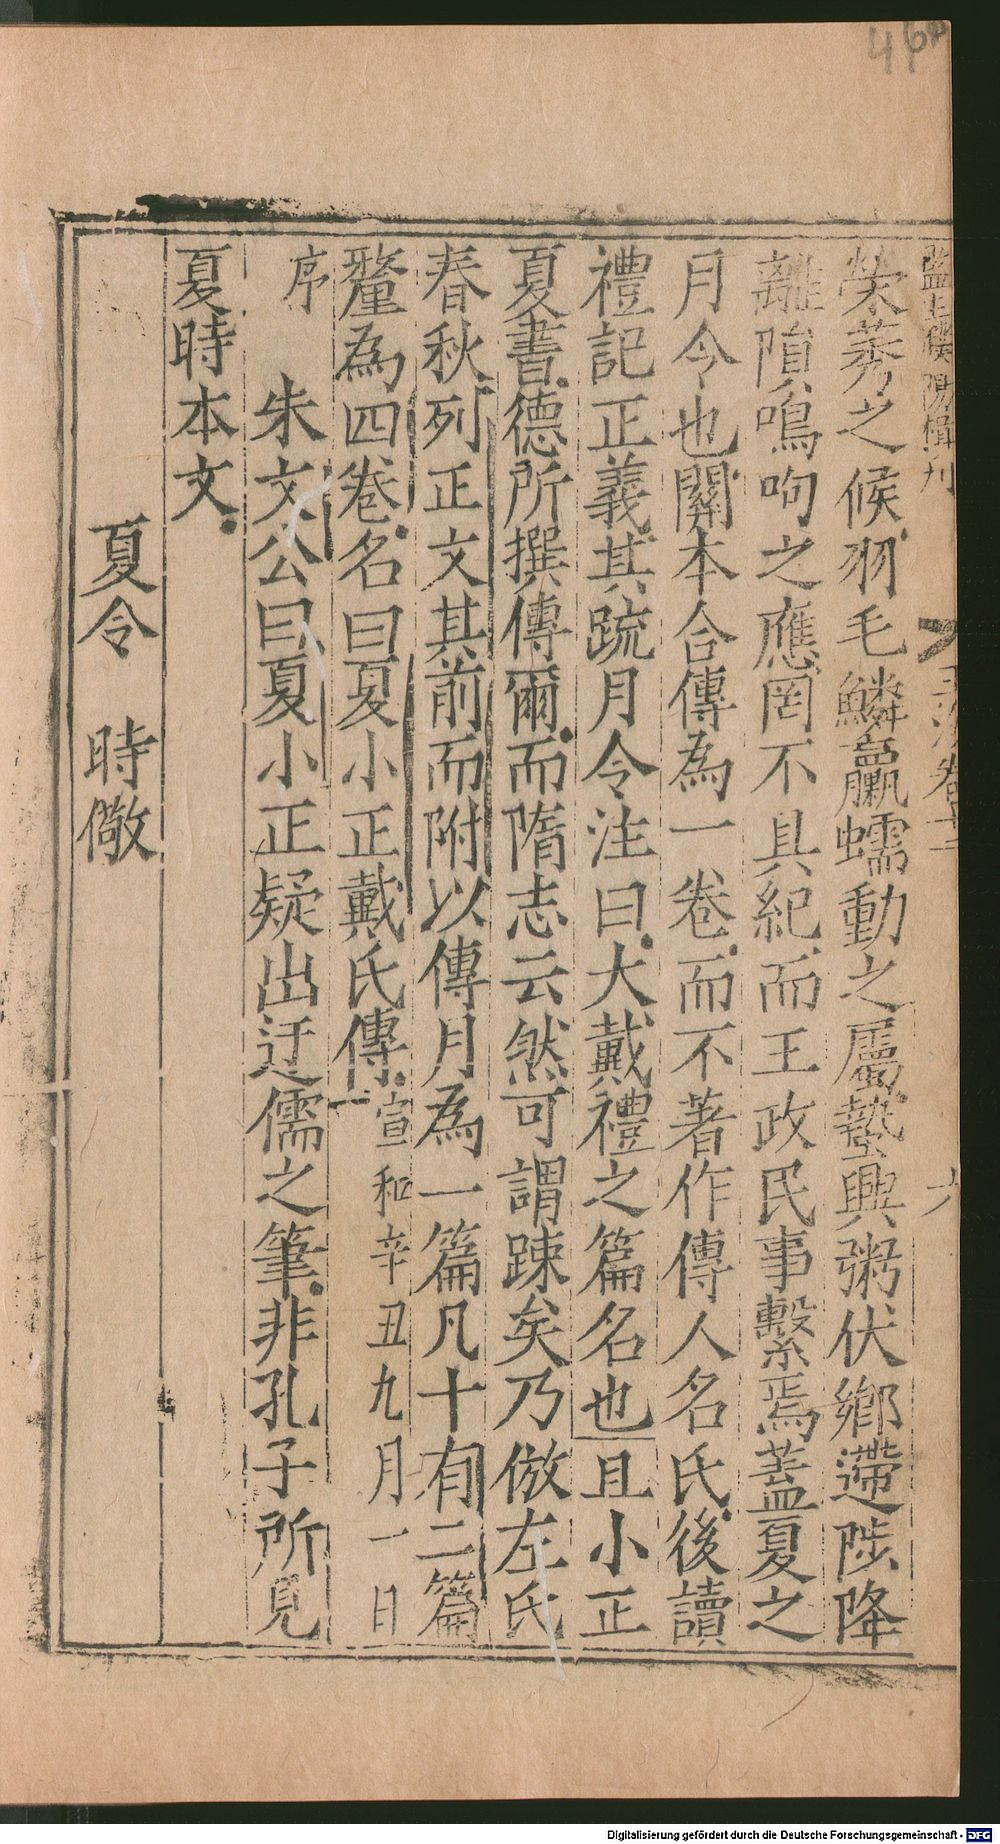 榮莠之候羽毛鱗蠃蠕動之屬蟄興粥伏鄉遰陟降
離隕鳴呴之應罔不具紀而王政民事繫焉蓋夏之
月令也關本合傳為一卷而不著作傳人名氏後讀
禮記正義其疏月令注曰大戴禮之篇名也且小正
夏書德所撰傳爾而隋志云然可謂踈矣乃倣左氏
春秋列正文其前而附以傳月為一篇凡十有二篇
釐為四卷名曰夏小正戴氏傳宣和辛丑九月一日
序
朱文公曰夏小正疑出迂儒之筆非孔子所見
夏時本文
夏令 時儆
六
460
Digitalisierung gefördert durch die Deutsche Forschungsgemeinschaft - DFG